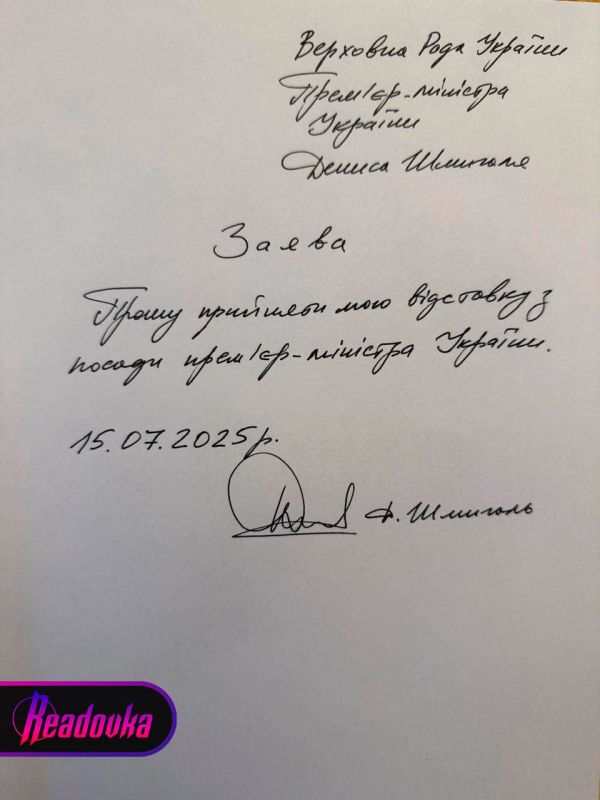 Верховна Рада України
Прем'єр-міністра
України
Дениса Шмигаля
Заява
Прошу прийняти мою відставку з
посади прем'єр-міністра України.
15.07.2025р.
Д. Шмигаль
Readovka